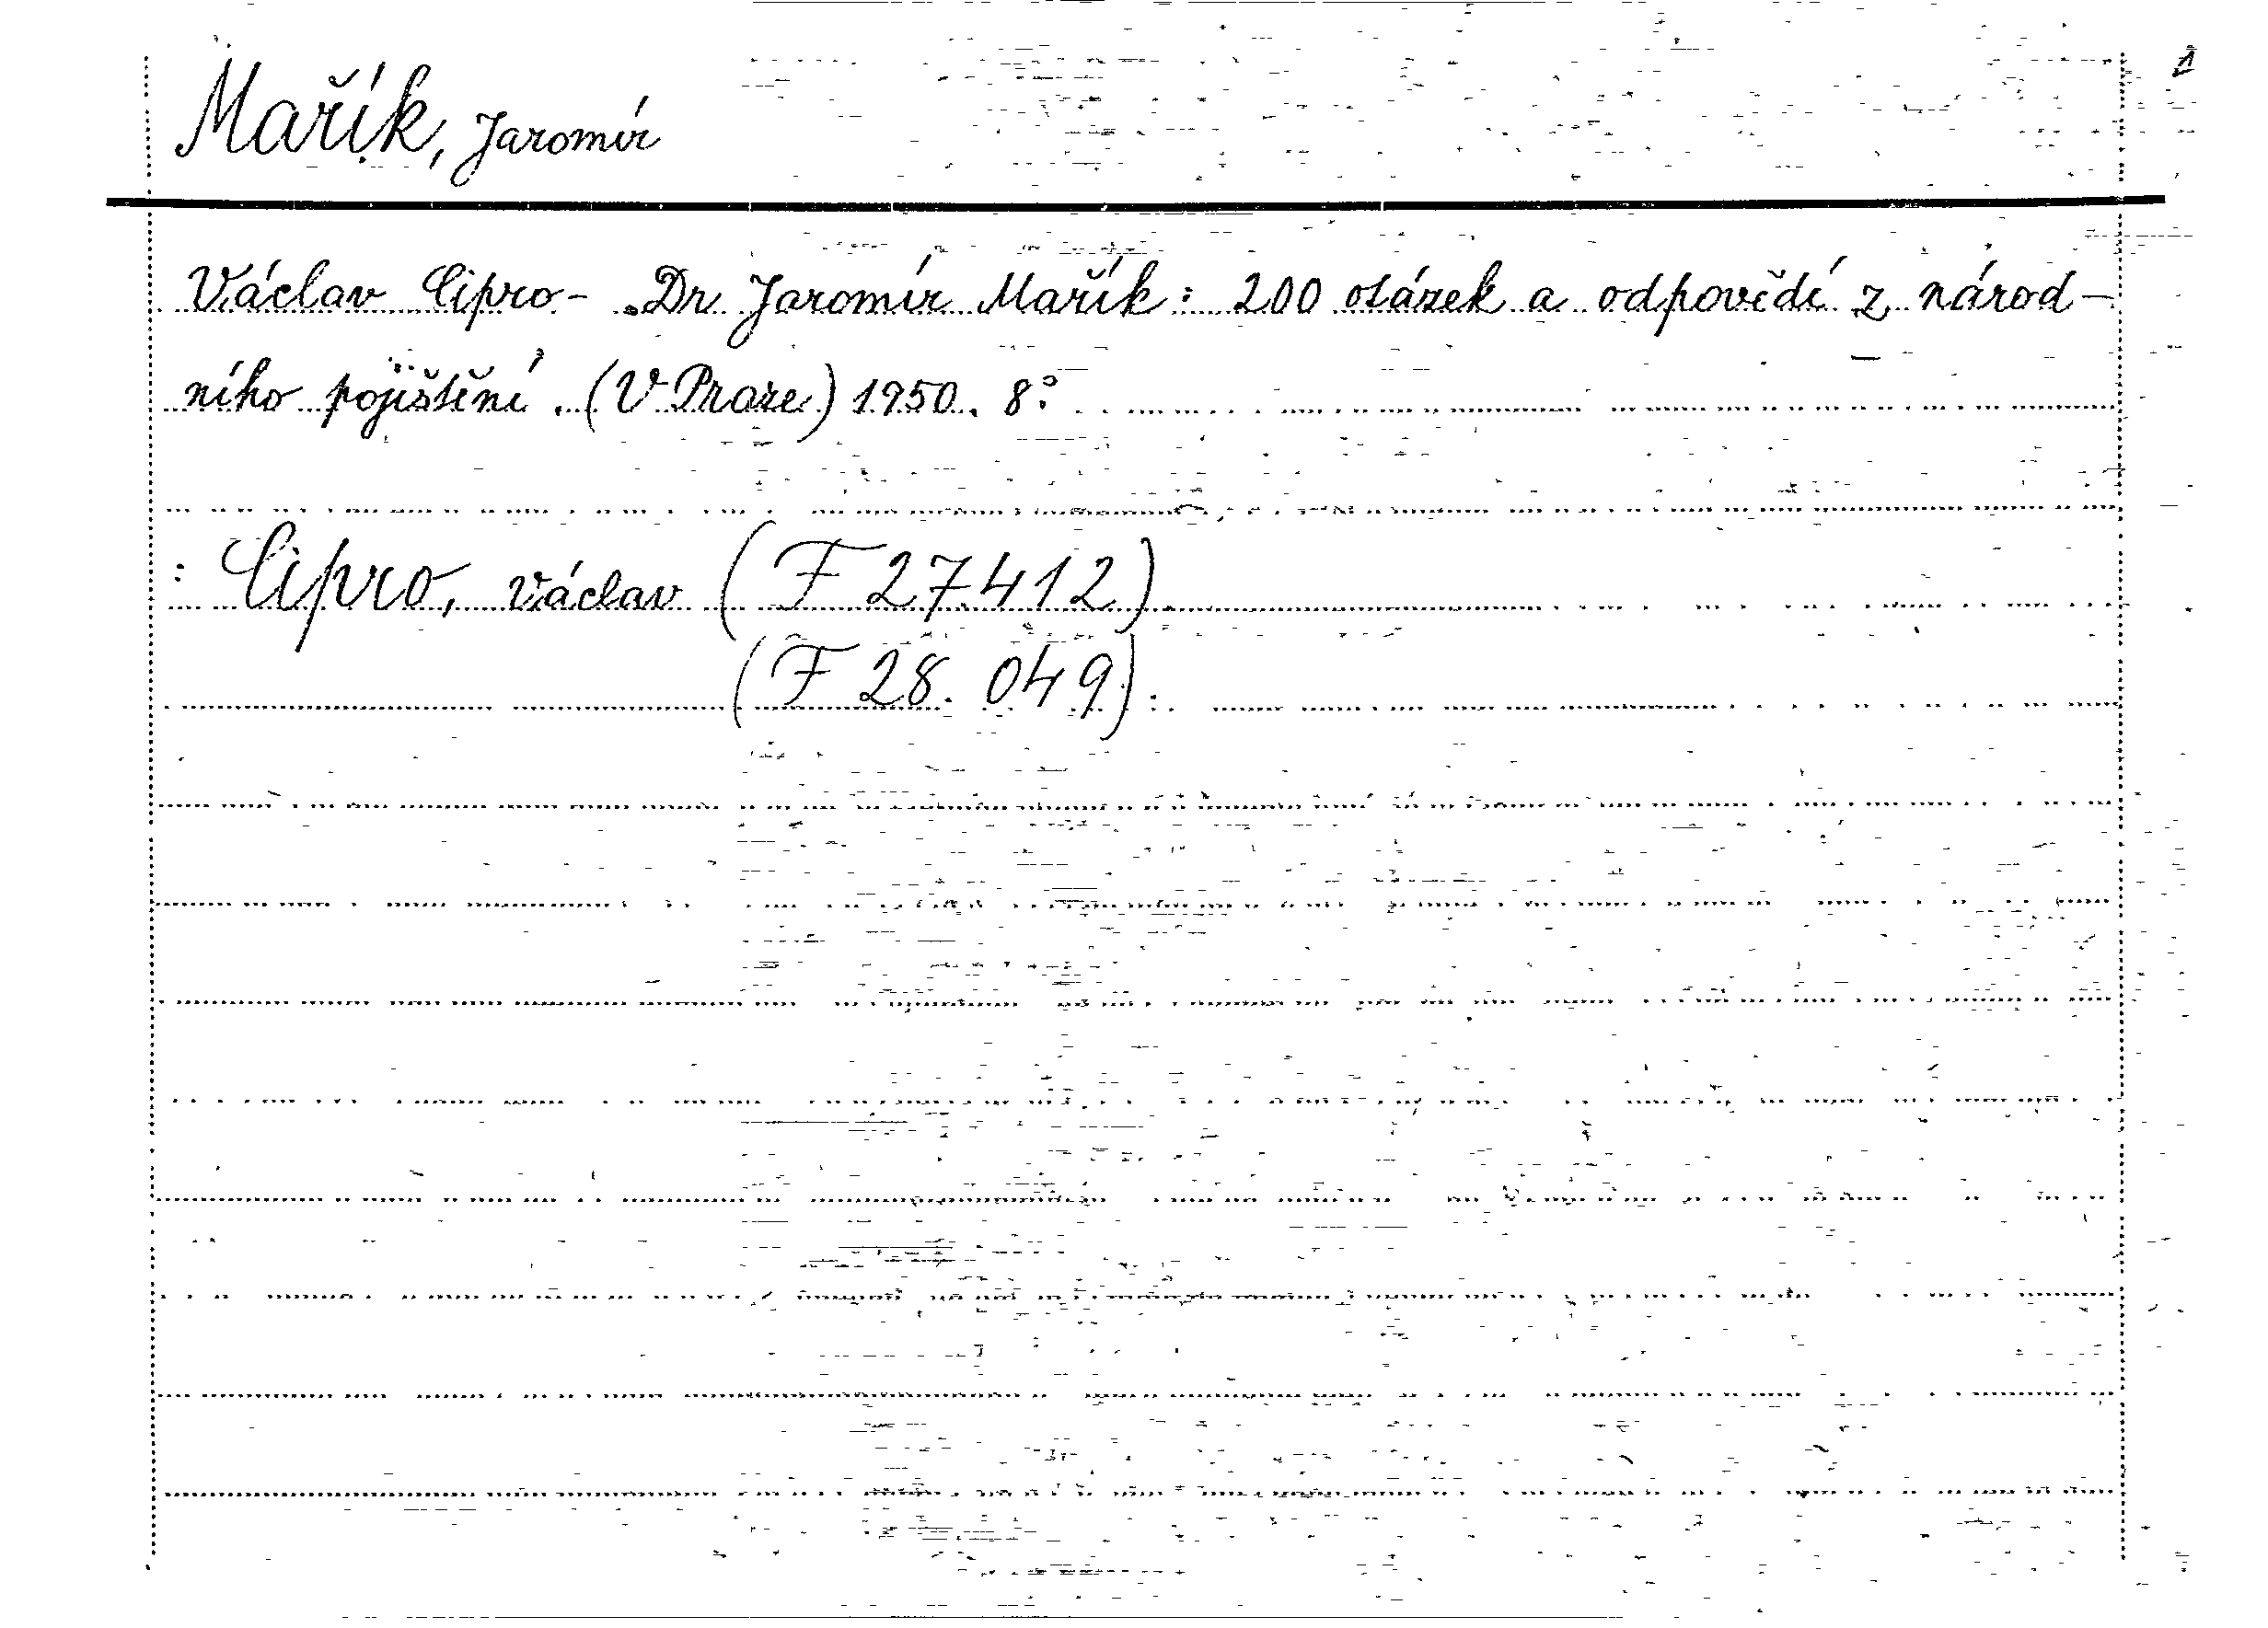 Mařík, Jaromír
Václav Cipro - Dr Jaromír Mařík: 200 otázek a odpovědí z národ-
ního pojištění. (V Praze) 1950. 8°.
: Cipro, Václav (F 27412).
(F 28.049).